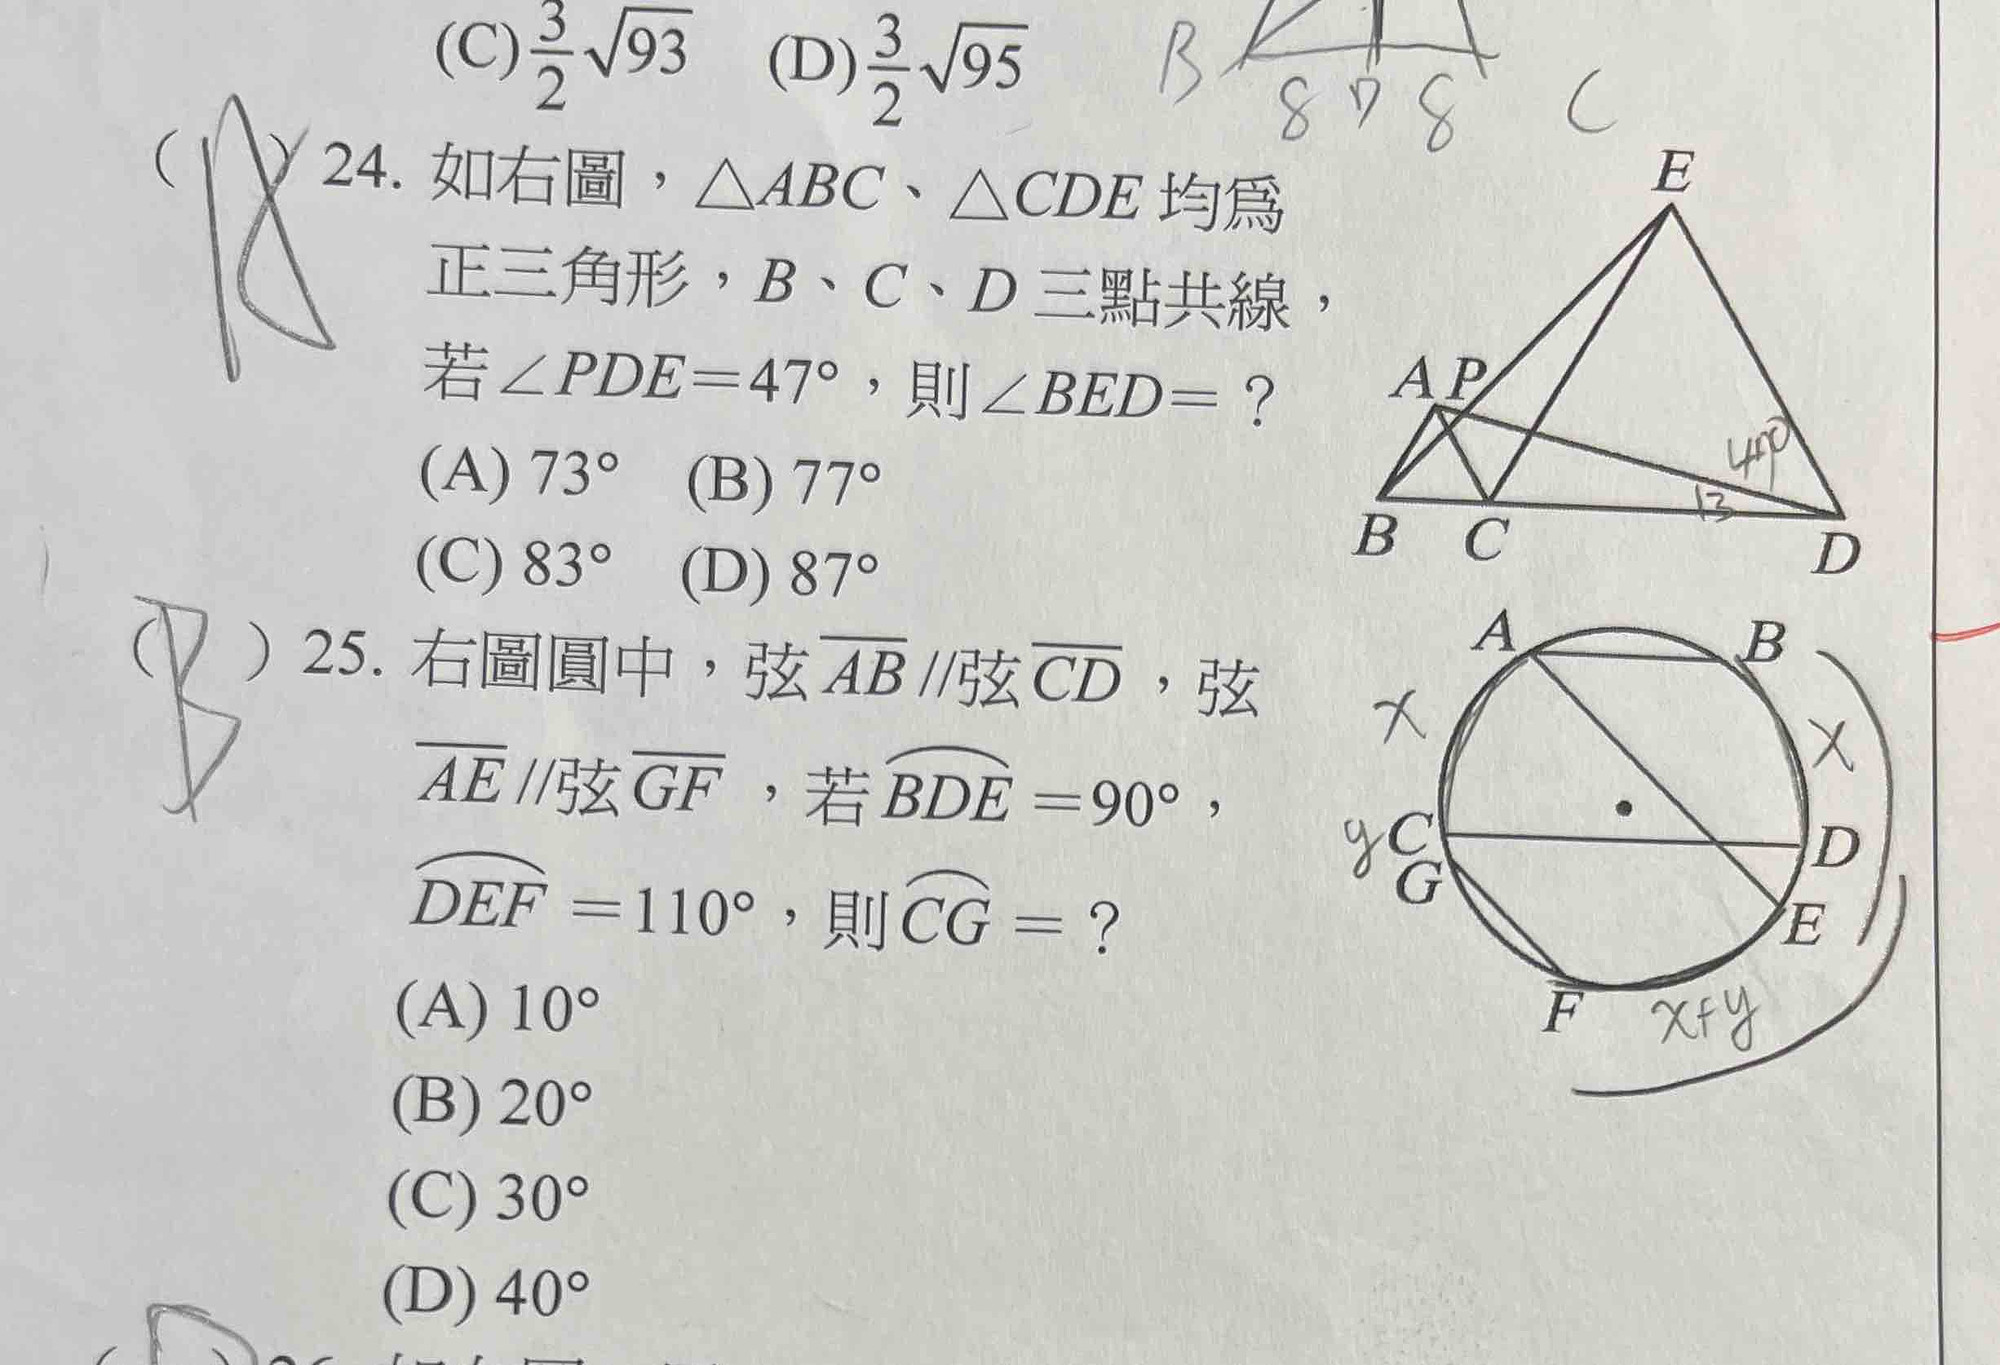 (C) 3/2 √93 (D) 3/2 √95
B 8 7 8 C
(A) 24. 如右圖，△ABC、△CDE 均為
正三角形，B、C、D 三點共線，
若∠PDE＝47°，則∠BED＝？
(A) 73° (B) 77°
(C) 83° (D) 87°
E
A P
47°
13
B C D
(B) 25. 右圖圓中，弦 A̅B̅ //弦 C̅D̅，弦
A̅E̅ //弦 G̅F̅，若 ⌒BDE ＝90°，
⌒DEF ＝110°，則 ⌒CG ＝？
(A) 10°
(B) 20°
(C) 30°
(D) 40°
A B
x x
y C D
G E
F x+y